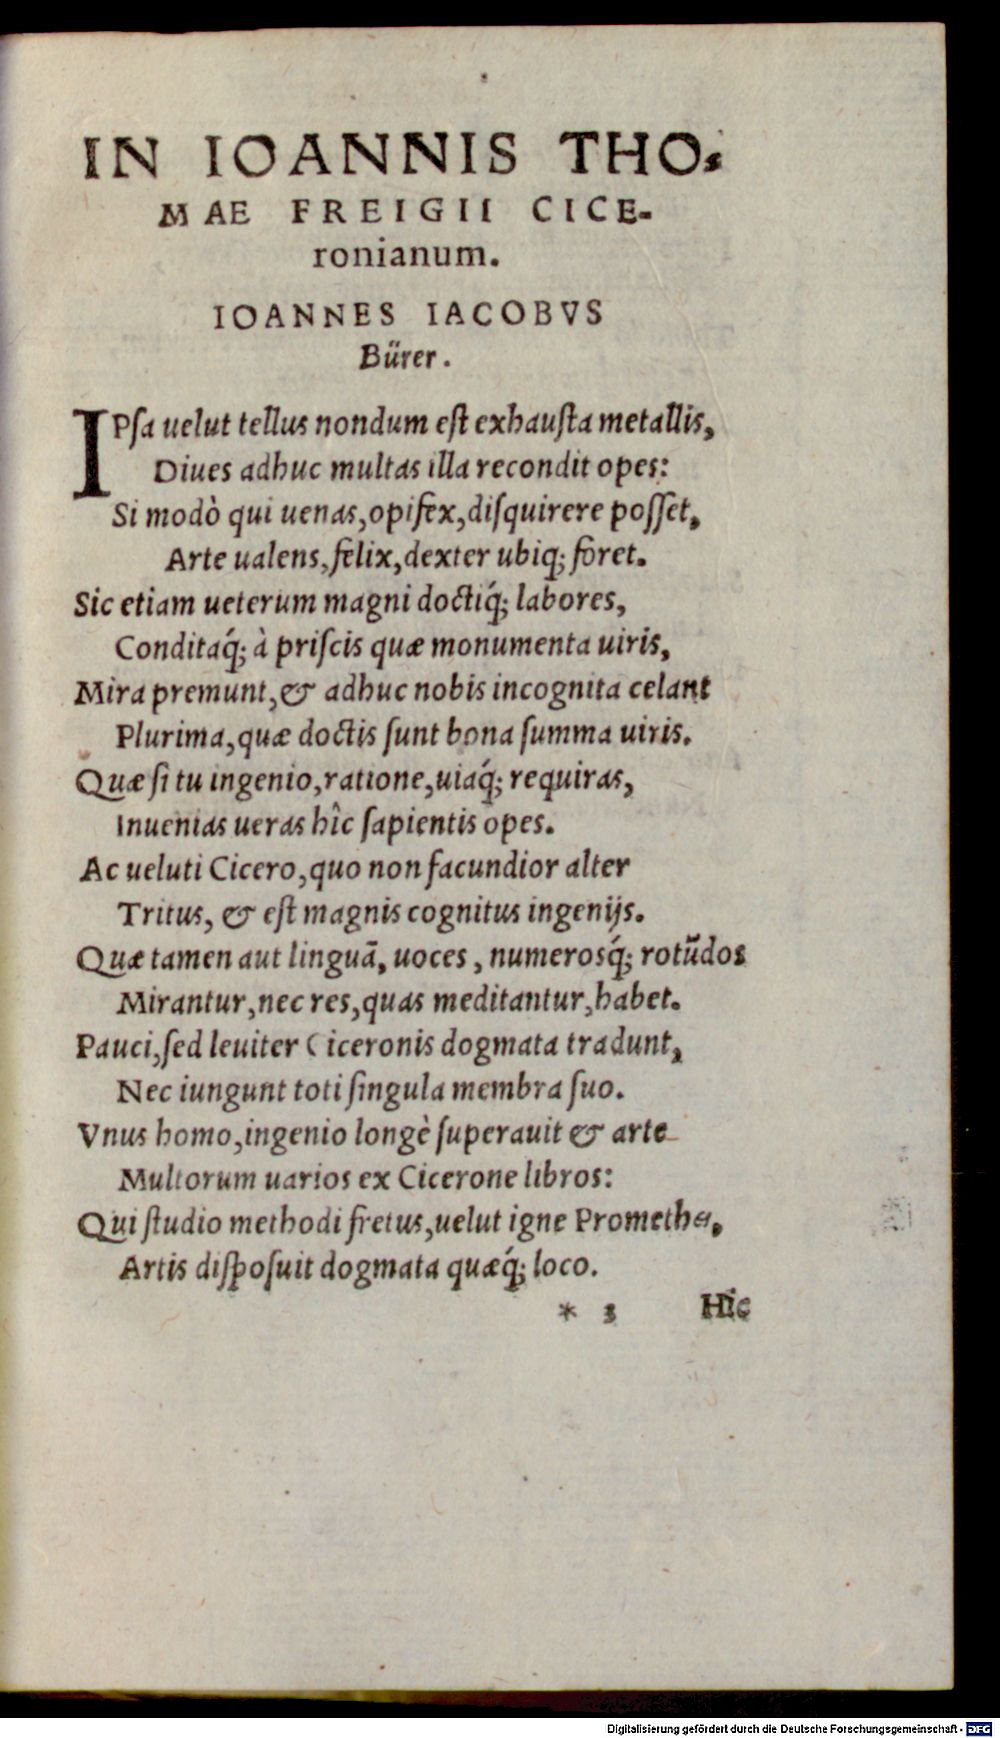 IN IOANNIS THO-
MAE FREIGII CICE-
ronianum.
IOANNES IACOBVS
Bürer.
IPſa uelut tellus nondum eſt exhauſta metallis,
Diues adhuc multas illa recondit opes:
Si modò qui uenas, opifex, diſquirere poſſet,
Arte ualens, felix, dexter ubiq; foret.
Sic etiam ueterum magni doctiq́; labores,
Conditaq́; à priſcis quæ monumenta uiris,
Mira premunt, & adhuc nobis incognita celant
Plurima, quæ doctis ſunt bona ſumma uiris.
Quæ ſi tu ingenio, ratione, uiaq́; requiras,
Inuenias ueras hîc ſapientis opes.
Ac ueluti Cicero, quo non facundior alter
Tritus, & eſt magnis cognitus ingenijs.
Quæ tamen aut linguā, uoces, numerosq́; rotūdos
Mirantur, nec res, quas meditantur, habet.
Pauci, ſed leuiter Ciceronis dogmata tradunt,
Nec iungunt toti ſingula membra ſuo.
Vnus homo, ingenio longè ſuperauit & arte
Multorum uarios ex Cicerone libros:
Qui ſtudio methodi fretus, uelut igne Promethei,
Artis diſpoſuit dogmata quæq́; loco.
* 3 Hic
Digitalisierung gefördert durch die Deutsche Forschungsgemeinschaft - DFG